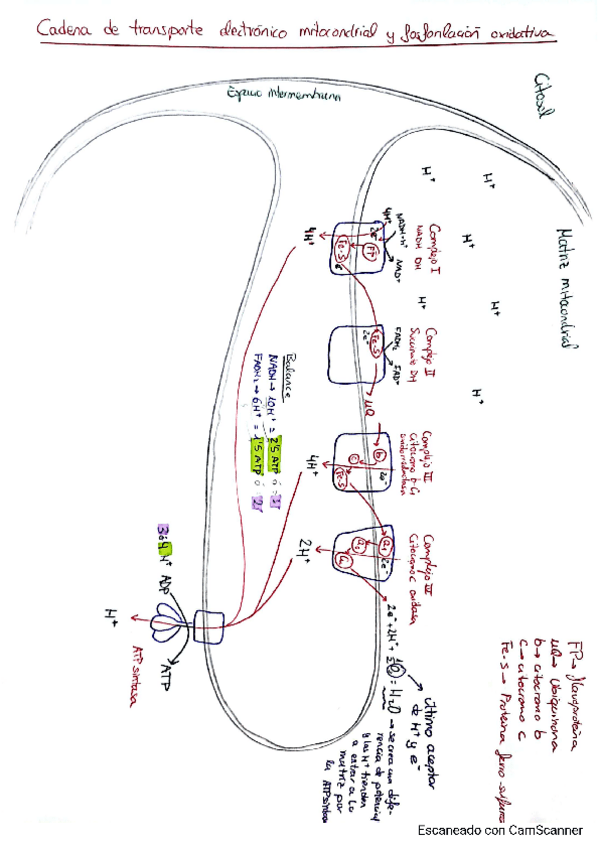 Cadena de transporte electrónico mitocondrial y fosforilación oxidativa
Citosol
Espacio intermembrana
Matriz mitocondrial
H+
H+
H+
H+
H+
H+
Complejo I
NADH DH
NADH+H+
NAD+
4H+
2e-
FP
Fe-S
4H+
Complejo II
Succinato DH
FADH2
FAD+
Fe-S
2e-
UQ
Complejo III
Citocromo b-C1
oxidorreductasa
b
2e-
c
Fe-S
4H+
Complejo IV
Citocromo c oxidasa
a3
2e-
2H+
2e- + 2H+ + 1/2 O2 = H2O → se crea una dife-
rencia de potencial
y los H+ tienden
a entrar a la
matriz por
la ATPsintasa
Último aceptor
de H+ y e-
FP → flavoproteína
UQ → Ubiquinona
b → citocromo b
c → citocromo c
Fe-S → Proteína ferro-sulfuro
Balance
NADH → 10H+ = 2'5 ATP ó 3
FADH2 → 6H+ = 1'5 ATP ó 2
3 ó 4 H+
ADP
ATP
ATP sintasa
H+
Escaneado con CamScanner